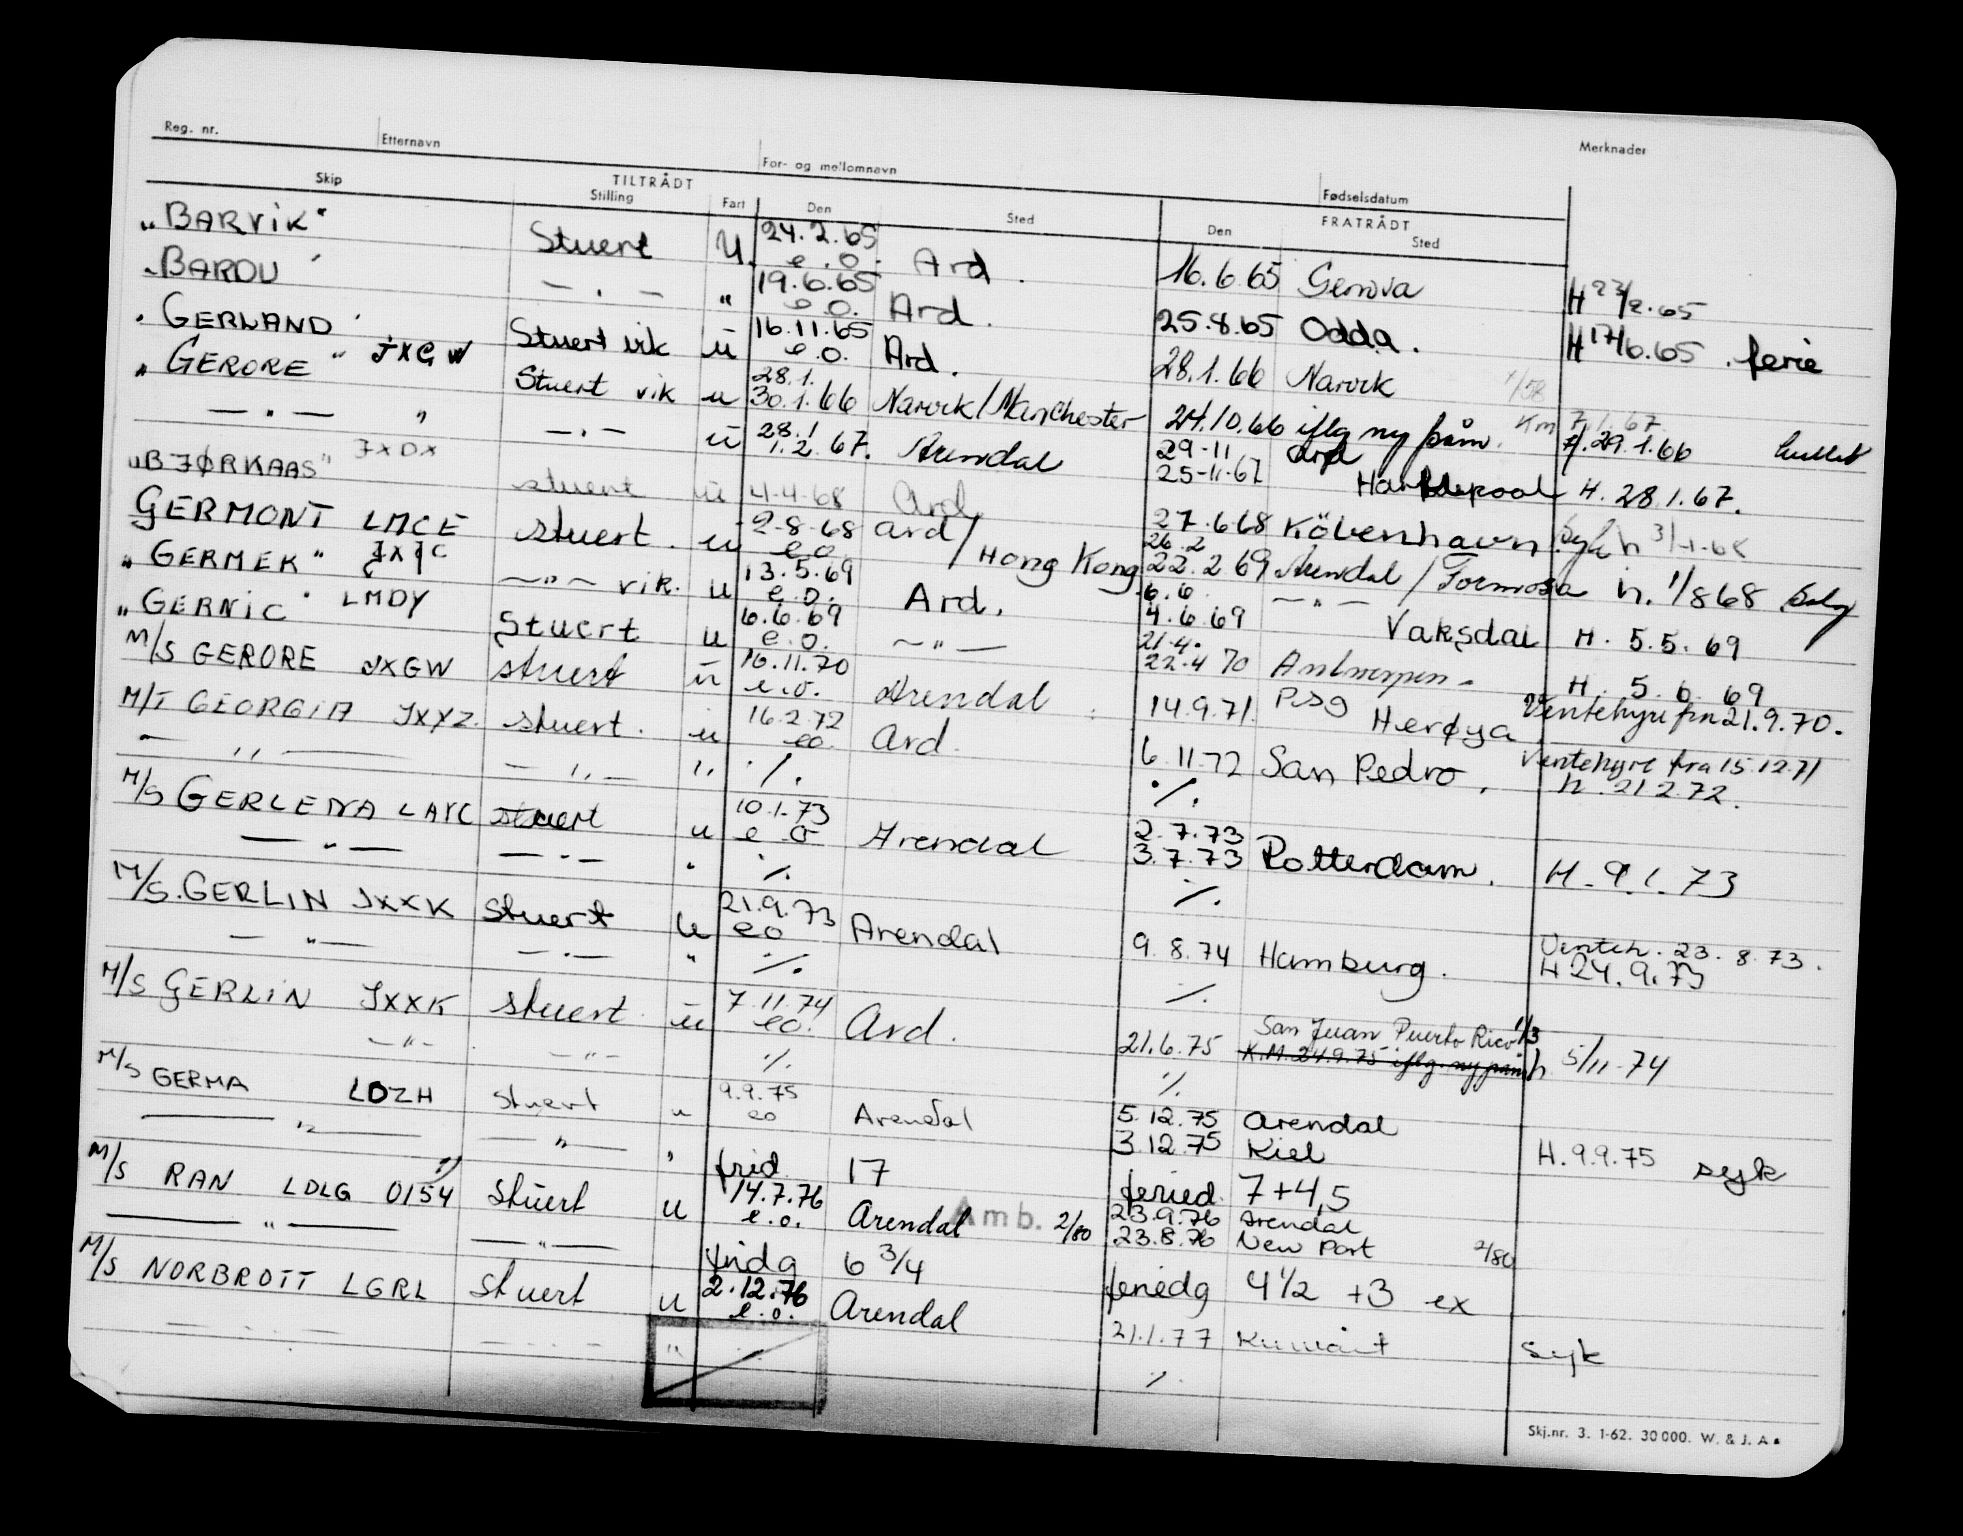 Reg. nr. Etternavn For- og mellomnavn Fødselsdatum Merknader
Skip TILTRÅDT Stilling Fart Den Sted FRATRÅDT Den Sted
"BARVIK" Stuert U. 24.2.65 e.o. Ard. 16.6.65 Genova H 23/2.65
"BARDU" — " — " 19.6.65 e.o. Ard. 25.8.65 Odda. H 17/6.65. ferie
"GERLAND" Stuert vik u 16.11.65 e.o. Ard. 28.1.66 Narvik 1/58
"GERORE" JXGW Stuert vik u 28.1. 30.1.66 Narvik/Manchester 24.10.66 iflg ny påm. Km 7.1.67. 29.1.66
— " — " — " — u 28.1 1.2.67. Arendal 29-11 Ard 25-11-67 Hartlepool H. 28.1.67.
"BJØRKAAS" JXDX stuert u 4.4.68 Ard 27.6.68 København. Syk h 3/4.68
GERMONT LMCE stuert. u 2-8-68 e.o. Ard/Hong Kong 26.2 22.2.69 Arendal/Formosa h. 1/8 68
"GERMEK" JXJC — " — vik. u 13.5.69 e.o. Ard. 6.6. 4.6.69 — " — Vaksdal H. 5.5.69
"GERNIC" LMDY Stuert u 6.6.69 e.o. — " — 21.4. 22.4.70 Antwerpen. H. 5.6.69
M/S GERORE JXGW stuert u 16.11.70 e.o. Arendal 14.9.71. Herøya Ventehyre fra 21.9.70.
M/T GEORGIA JXYZ. stuert. u 16.2.72 eo. Ard. 6.11.72 San Pedro. Ventehyre fra 15.12.71 h. 21.2.72.
— " — — " — " ./. ./.
M/S GERLENA LAYC stuert u 10.1.73 e.o Arendal 2.7.73 3.7.73 Rotterdam. H. 9.1.73
— " — — " — " ./. ./.
M/S. GERLIN JXXK Stuert u 21.9.73 eo Arendal 9.8.74 Hamburg. Venteh. 23.8.73. H 24.9.73
— " — — " — " ./. ./.
M/S GERLIN JXXK stuert u 7.11.74 eo. Ard. 21.6.75 San Juan Puerto Rico 1/3 K.M. 24.9.75 iflg. ny påm h 5/11-74
— " — — " — ./. ./.
M/S GERMA LDZH stuert u 9.9.75 eo Arendal 5.12.75 Arendal 3.12.75 Kiel H. 9.9.75 syk
— " — — " — " frid 17 feried. 7+4,5
M/S RAN LDLG 0154 stuert u 14.7.76 e.o. Arendal Amb. 2/80 23.9.76 Arendal 23.8.76 New Port 2/80
— " — — " — fridg 6 3/4 feriedg 4 1/2 +3 ex
M/S NORBROTT LGRL stuert u 2.12.76 e.o. Arendal 21.1.77 Kuwait syk
— " — — " — " ./.
Skj.nr. 3. 1-62. 30 000. W. & J. A.